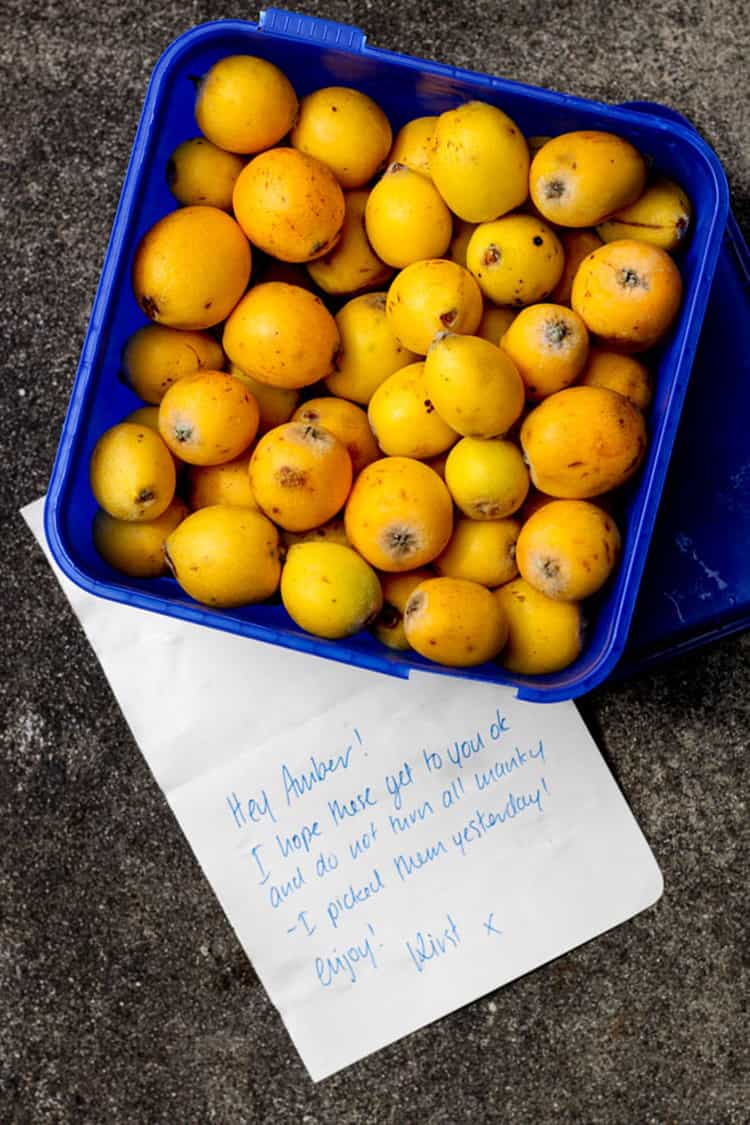 Hey Amber!
I hope these get to you ok
and do not turn all manky
- I picked them yesterday!
enjoy! Kirst x